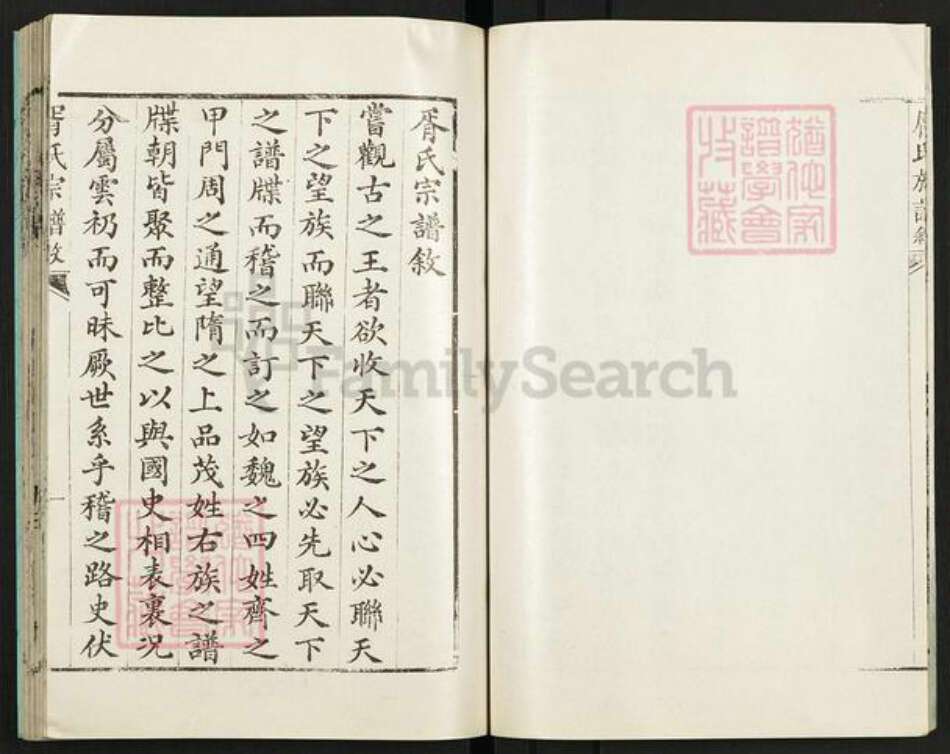 胥氏宗譜敘
嘗觀古之王者欲收天下之人心必聯天
下之望族而聯天下之望族必先取天下
之譜牒而稽之而訂之如魏之四姓齊之
甲門周之通望隋之上品茂姓右族之譜
牒朝皆聚而整比之以與國史相表裏况
分屬雲礽而可昧厥世系乎稽之路史伏
胥氏宗譜敘
一
譜學會
收藏
FamilySearch
氏族譜